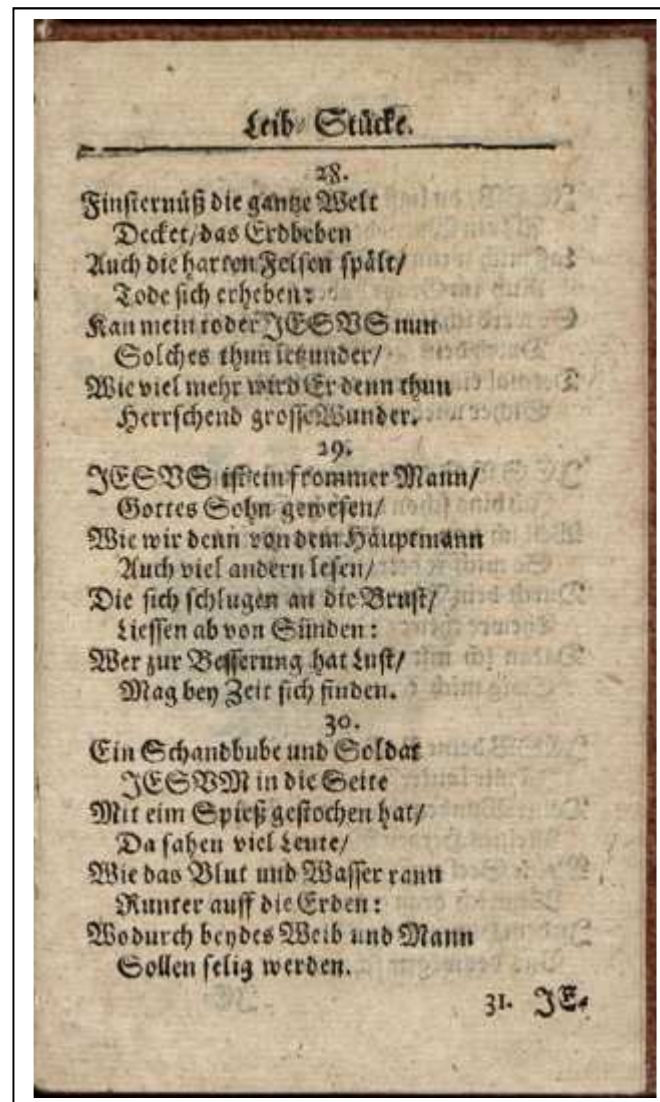 Leib-Stücke.
28.
Finsternüß die gantze Welt
Decket/das Erdbeben
Auch die harten Felsen spält/
Tode sich erheben:
Kan mein toder JESVS nun
Solches thun ietzunder/
Wie viel mehr wird Er denn thun
Herrschend grosse Wunder.
29.
JESVS ist ein frommer Mann/
Gottes Sohn gewesen/
Wie wir denn von dem Häuptmann
Auch viel andern lesen/
Die sich schlugen an die Brust/
Liessen ab von Sünden:
Wer zur Besserung hat Lust/
Mag bey Zeit sich finden.
30.
Ein Schandbube und Soldat
JESVM in die Seite
Mit eim Spieß gestochen hat/
Da sahen viel Leute/
Wie das Blut und Wasser rann
Runter auff die Erden:
Wodurch beydes Weib und Mann
Sollen selig werden.
31. JE-